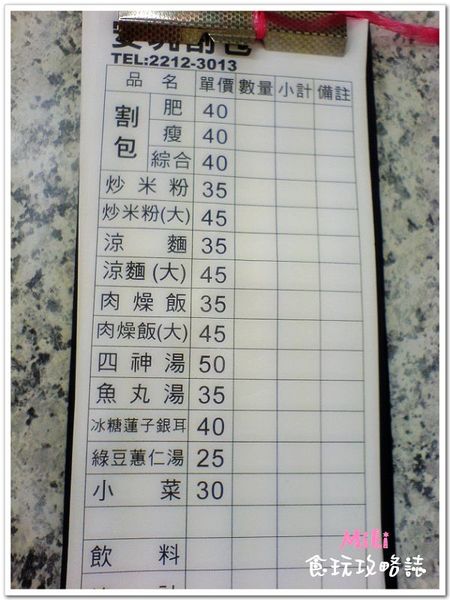 安坑割包
TEL:2212-3013
品名 單價 數量 小計 備註
割包 肥 40
瘦 40
綜合 40
炒米粉 35
炒米粉(大) 45
涼麵 35
涼麵(大) 45
肉燥飯 35
肉燥飯(大) 45
四神湯 50
魚丸湯 35
冰糖蓮子銀耳 40
綠豆薏仁湯 25
小菜 30
飲料
Miki
食玩攻略誌